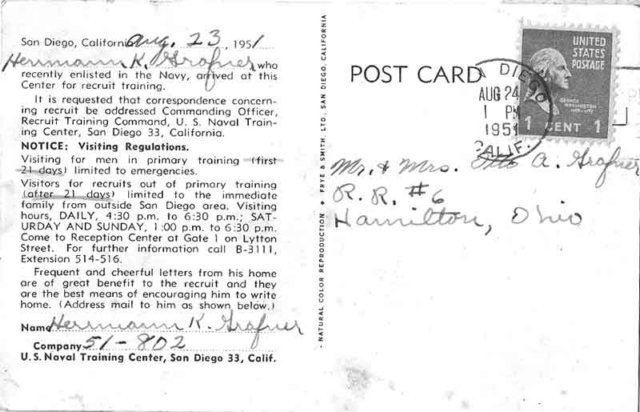 San Diego, California Aug. 23, 1951
Herrmann K. Grafner who
recently enlisted in the Navy, arrived at this
Center for recruit training.
It is requested that correspondence concern-
ing recruit be addressed Commanding Officer,
Recruit Training Command, U. S. Naval Train-
ing Center, San Diego 33, California.
NOTICE: Visiting Regulations.
Visiting for men in primary training (first
21 days) limited to emergencies.
Visitors for recruits out of primary training
(after 21 days) limited to the immediate
family from outside San Diego area. Visiting
hours, DAILY, 4:30 p.m. to 6:30 p.m.; SAT-
URDAY AND SUNDAY, 1:00 p.m. to 6:30 p.m.
Come to Reception Center at Gate 1 on Lytton
Street. For further information call B-3111,
Extension 514-516.
Frequent and cheerful letters from his home
are of great benefit to the recruit and they
are the best means of encouraging him to write
home. (Address mail to him as shown below.)
Name Herrmann K. Grafner
Company 51-802
U. S. Naval Training Center, San Diego 33, Calif.
• NATURAL COLOR REPRODUCTION • FRYE & SMITH, LTD., SAN DIEGO, CALIFORNIA
POST CARD
UNITED
STATES
POSTAGE
GEORGE
WASHINGTON
1 CENT 1
DIEGO
AUG 24
1 PM
1951
CALIF.
Mr. & Mrs. Otto A. Grafner
R. R. #6
Hamilton, Ohio